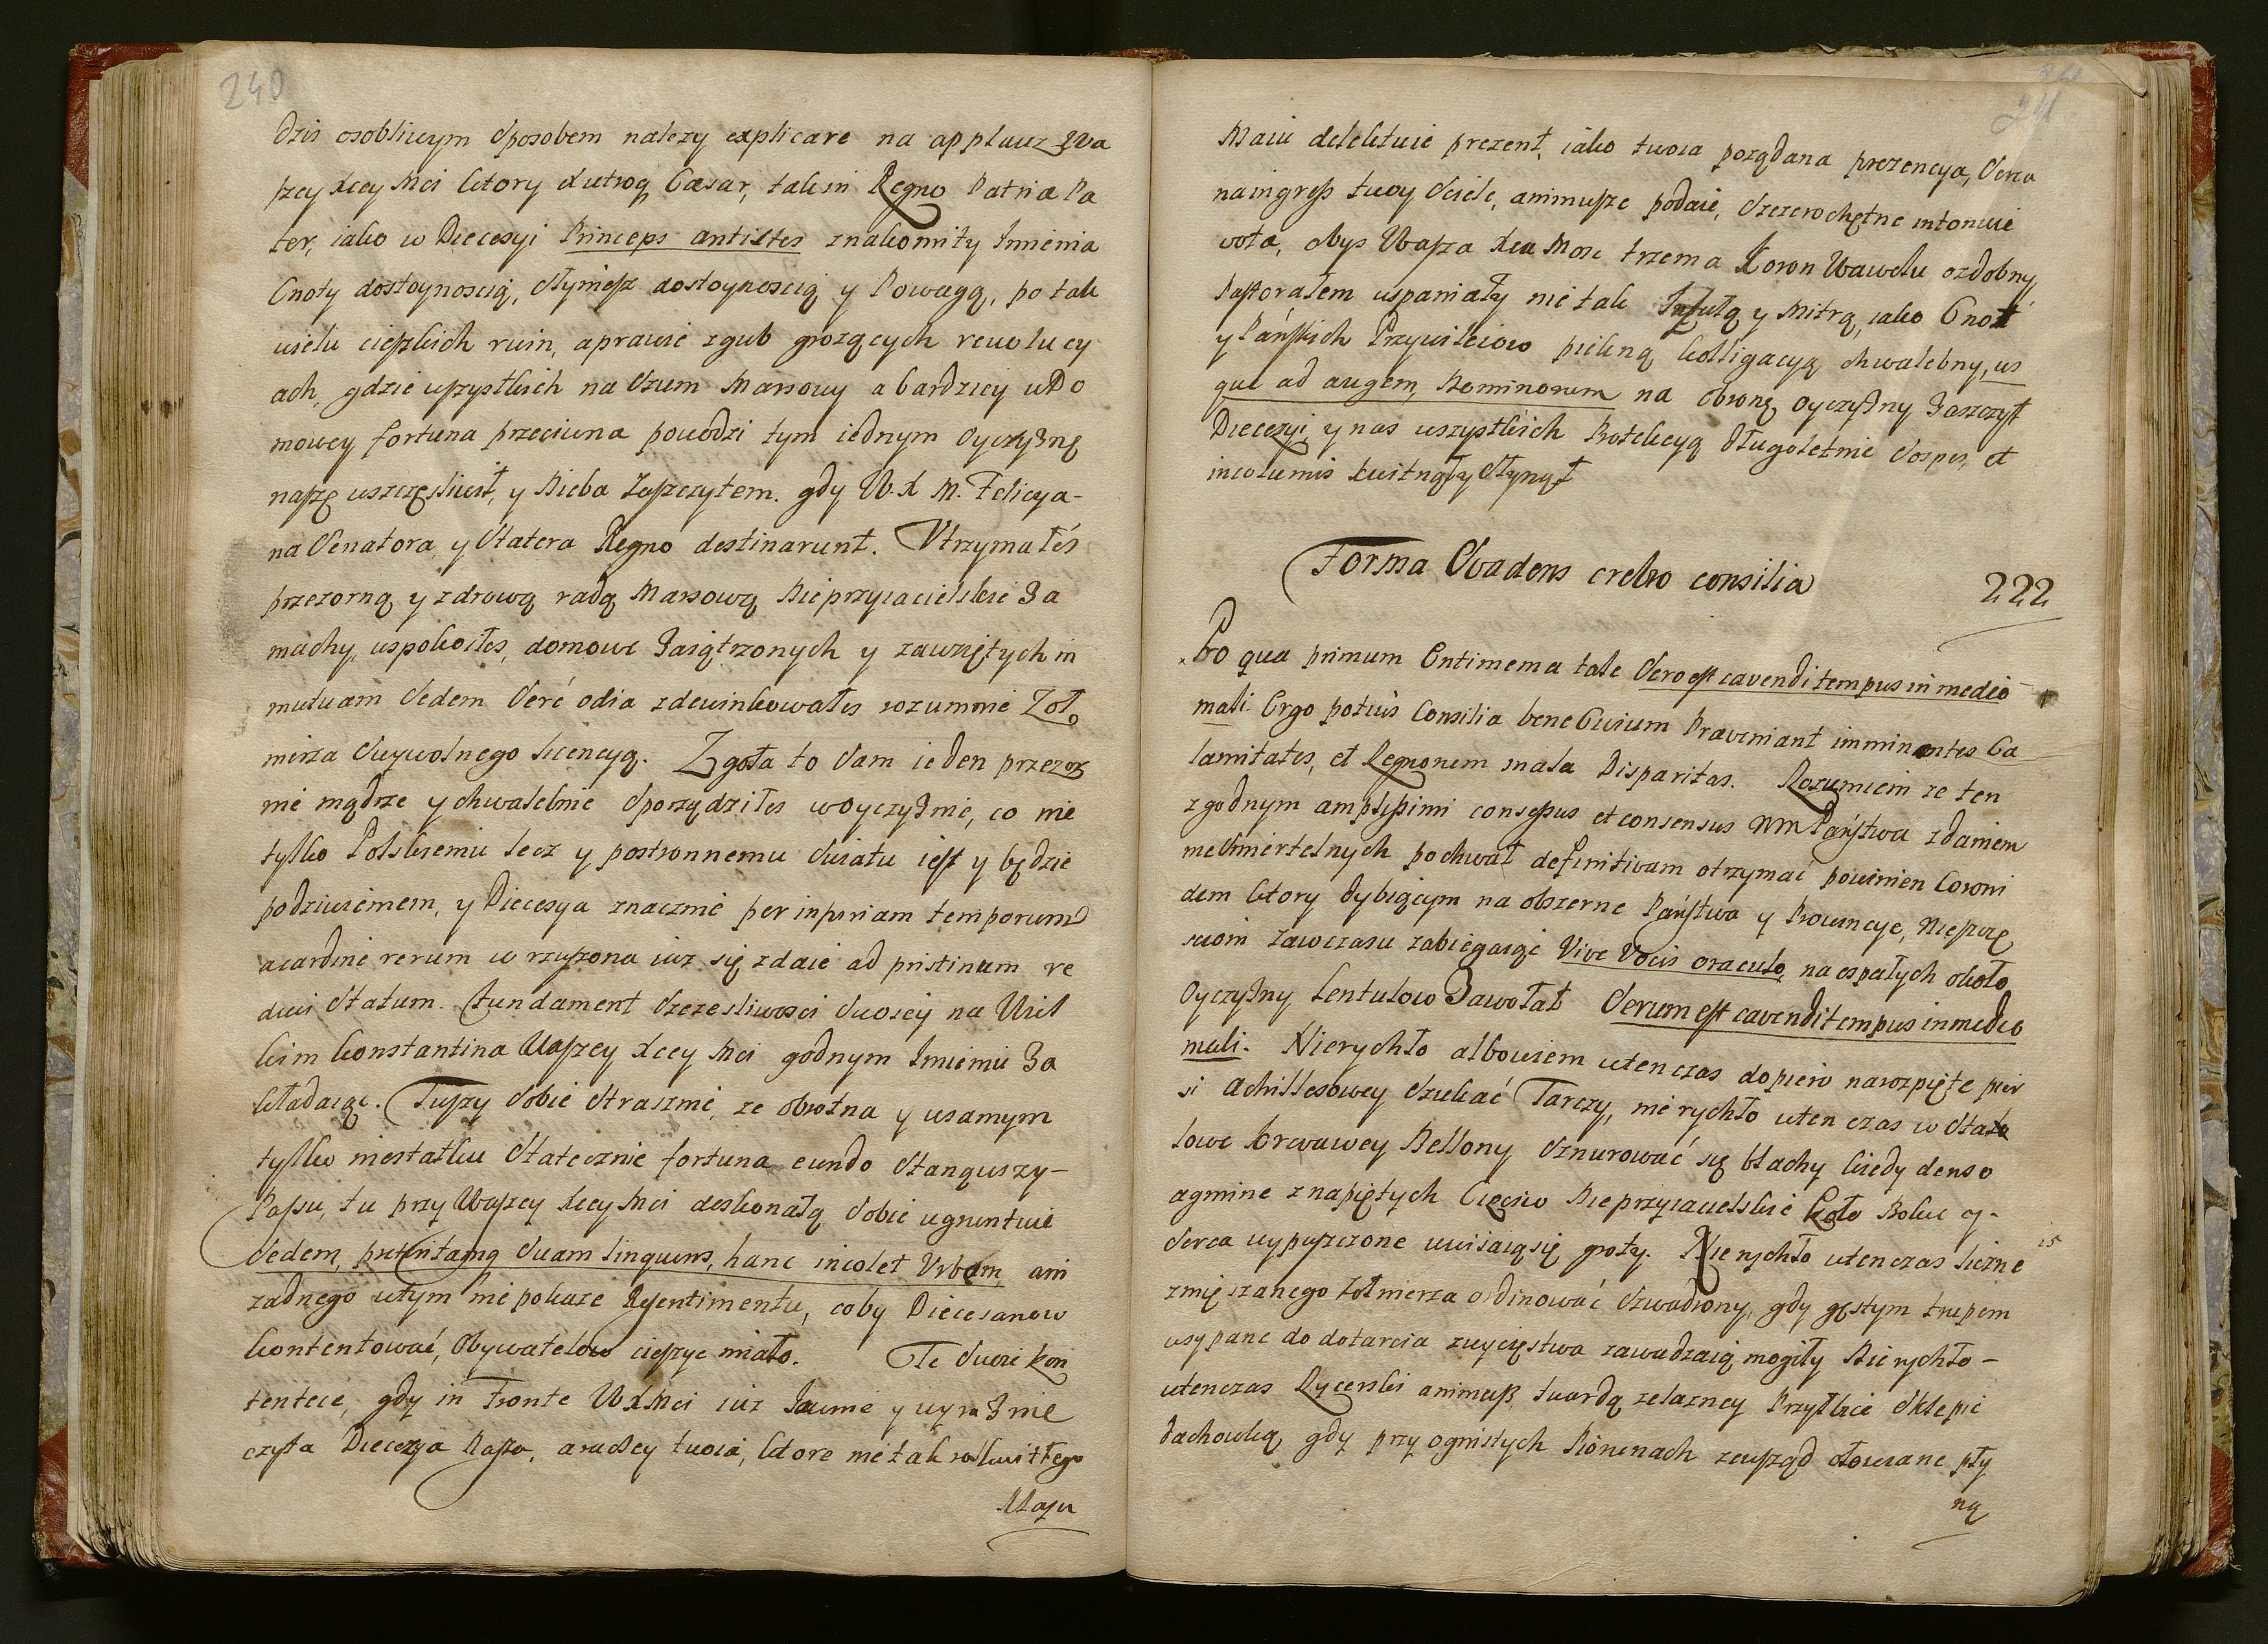 240
dzis osobliwym sposobem nalezy explicare na applauz Wa
szey Xcey Mci ktory Xutroq Cæsar, tak in Regno Patriæ Pa
ter, iako w Diecesyi Princeps antistes znakomity Imienia
Cnoty dostoynoscią, słyniesz dostoynoscią y Powagą, po tak
wielu cięszkich ruin, aprawie zgub grozących rewolucy
ach, gdzie wszystkich na Szum Marsowy a bardziey wDo
mowey fortuna przeciwna powodzi tym iednym Oyczyznę
naszę uszczęsliwił, y Nieba Zaszczytem. gdy W. X M. Felicya-
na Senatora, y Statera Regno destinarunt. Vtrzymałes
przezorną y zdrową radą Marsową Nieprzyiacielskie Za
machy, uspokoiłes, domowe Zaiątrzonych y zawziętych in
mutuam Sedem Seré odia zdewinkowałes rozumnie Zoł
nierza swywolnego licencyą. Zgoła to Sam ieden przezor
nie mądrze y chwalebnie Sporządziłes w Oyczyznie, co nie
tylko Polskiemu lecz y postronnemu Swiatu iest y będzie
podziwieniem, y Diecesya znacznie per injuriam temporum
acardine rerum wrzuszona iuz się zdaie ad pristinum re
duci Statum. Fundament Szczęsliwosci Swoiey na Wiel
kim Konstantina Waszey Xcey Mci godnym Imieniu Za
kładaiąc. Tuszy Sobie Strasznie, ze obrotna y wsamym
tylko niestatku Statecznie fortuna eundo Stanąwszy-
Passu, tu przy Waszey Xcey Mci doskonałą Sobie ugruntuie
Sedem, Suam linquens, hanc incolet Vrbem, ani
zadnego wtym nie pokaze Resentimentu, coby Diecesanow
kontentować, Obywatelow cieszyc miało. Te Swoie kon
tentece, gdy in Fronte W X Mci iuz Jawnie y wyraznie
czyta Diecezya Nasza, twoia, ktore nie tak
Maju
241
Maiu delektuie prezent, iako twoia poządana prezencya, Serca
na ingress twoy Sciele, animusze podaie, Szczerochętne intonuie
vota, obys Wasza Xca Mosc trzema Koron Wawelu ozdobny
Pastorałem wspaniały nie tak Infułą y Mitrą, iako Cnot
y Pańskich Przywileiow piękną kolligacyą chwalebny, us
que ad augem, Nominorum na obronę Oyczyzny Zaszczyt
Diecezyi y nas wszystkich Protekcyą długoletnie Sospes, et
incolumis kwitnął y Słynął
Forma Svadens crebro consilia
222
Pro qua primum Entimema tale Sero est cavendi tempus in medio
mali. Ergo potius Consilia bene Civium Præveniant imminentes Ca
lamitates, et Regnorum mala Disparitas. Rozumiem ze ten
zgodnym amplissimi consessus et consensus WM Państwa zdaniem
nieSmiertelnych pochwał definitivam otrzymać powinien Coroni
dem ktory dybiącym na obszerne Państwa y Prowincye, Nieprzy
iaciom Zawczasu zabiegaiąc Vive Vocis oraculo, na ospałych około
Oyczyzny Lentulow Zawołał Serum est cavendi tempus in medio
mali. Nierychło albowiem wtenczas dopiero narozpięte pier
si Achillesowey Szukać Tarczy, nie rychło wten czas w Stalo
lowe krwawey Bellony Sznurować się blachy kiedy denso
agmine znapiętych Cięciw Nieprzyiacielskie Koło Boku y-
Serca wypuszczone uwiiaią się groty. Nie rychło wtenczas liczne
25
zmięszanego Zołnierza ordinować Szwadrony, gdy gęstym trupem
usypane do dotarcia zwycięstwa zawadzaią mogiły Nie rychło-
wtenczas Rycerski animusz, twardą zelazney Przyłbice Sklepic
dachowką, gdy przy ognistych Piorunach zewsząd ołowiane pły
ną